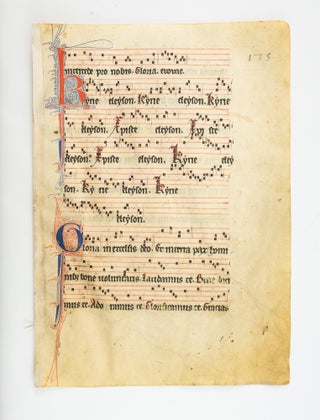 175
intercede pro nobis. Gloria. evovae.
Kyrie eleyson. Kyrie eleyson. Kyrie
eleyson. Xpiste eleyson. Xpi ste
eleyson. Xpiste eleyson. Kyrie eley
son. Ky rie eleyson. Kyrie
eleyson.
Gloria in excelsis deo. Et in terra pax homi
nibus bone voluntatis Laudamus te. Bene dici
mus te. Ado ramus te. Glorificamus te. Gracias